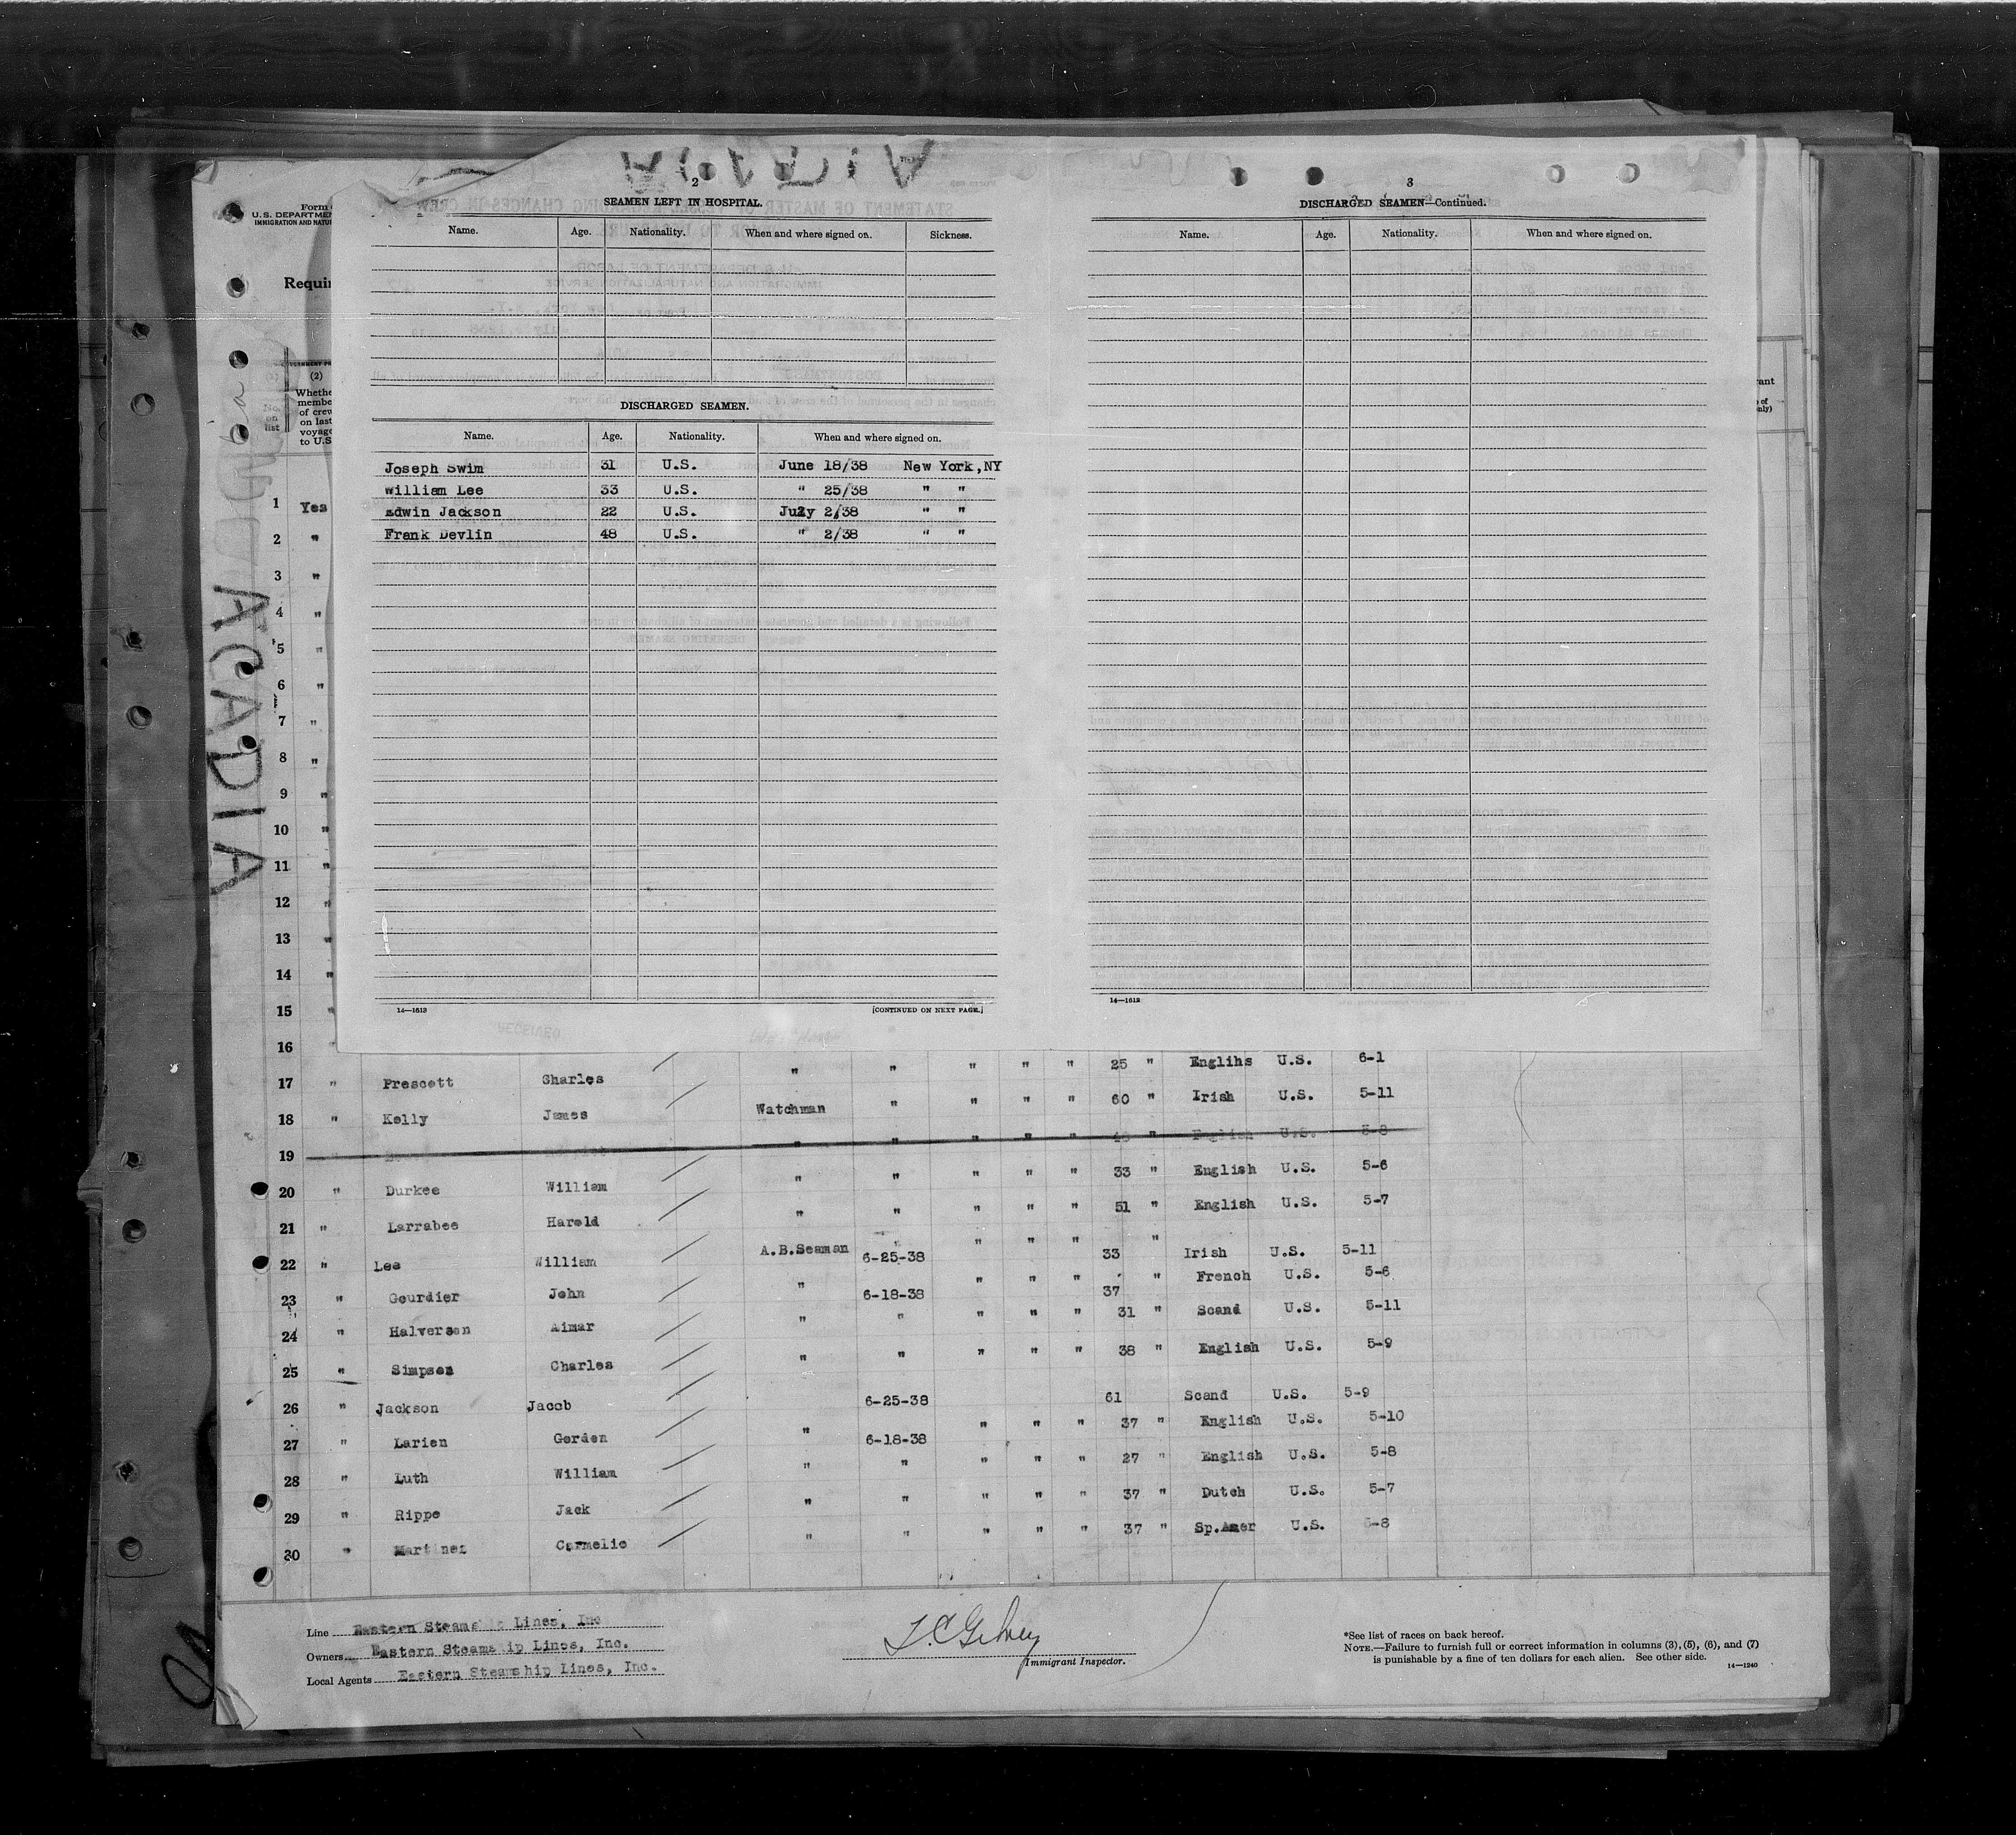 ACADIA
Form
U. S. DEPARTMEN
IMMIGRATION AND NATU
Requir
(2)
Whethe
membe
of crew
on last
voyage
to U.S.
No.
on
list
2
SEAMEN LEFT IN HOSPITAL.
Name. Age. Nationality. When and where signed on. Sickness.
DISCHARGED SEAMEN.
Name. Age. Nationality. When and where signed on.
Joseph Swim 31 U.S. June 18/38 New York,NY
William Lee 33 U.S. " 25/38 " "
Edwin Jackson 22 U.S. July 2/38 " "
Frank Devlin 48 U.S. " 2/38 " "
14—1613
[CONTINUED ON NEXT PAGE.]
3
DISCHARGED SEAMEN—Continued.
Name. Age. Nationality. When and where signed on.
14—1613
1 Yes
2 "
3 "
4 "
5 "
6 "
7 "
8 "
9 "
10 "
11 "
12 "
13 "
14 "
15 "
16 "
17 " Prescott Charles " " " " " 25 " Englihs U.S. 6-1
18 " Kelly James Watchman " " " " 60 " Irish U.S. 5-11
19 " " " " " " English U.S. 5-8
20 " Durkee William " " " " " 33 " English U.S. 5-6
21 " Larrabee Harold " " " " " 51 " English U.S. 5-7
22 " Lee William A.B.Seaman 6-25-38 " " " 33 " Irish U.S. 5-11
23 " Gourdier John " 6-18-38 " " " 37 " French U.S. 5-6
24 " Halversen Aimar " " " " " 31 " Scand U.S. 5-11
25 " Simpson Charles " " " " " 38 " English U.S. 5-9
26 " Jackson Jacob 6-25-38 61 Scand U.S. 5-9
27 " Larien Gorden " 6-18-38 " " " 37 " English U.S. 5-10
28 " Luth William " " " " " 27 " English U.S. 5-8
29 " Rippe Jack " " " " " 37 " Dutch U.S. 5-7
30 " Martinez Carmelio " " " " " 37 " Sp.Amer U.S. 5-8
Line Eastern Steamship Lines, Inc
Owners Eastern Steamship Lines, Inc.
Local Agents Eastern Steamship Lines, Inc.
Immigrant Inspector.
*See list of races on back hereof.
NOTE.—Failure to furnish full or correct information in columns (3), (5), (6), and (7)
is punishable by a fine of ten dollars for each alien. See other side.
14—1240